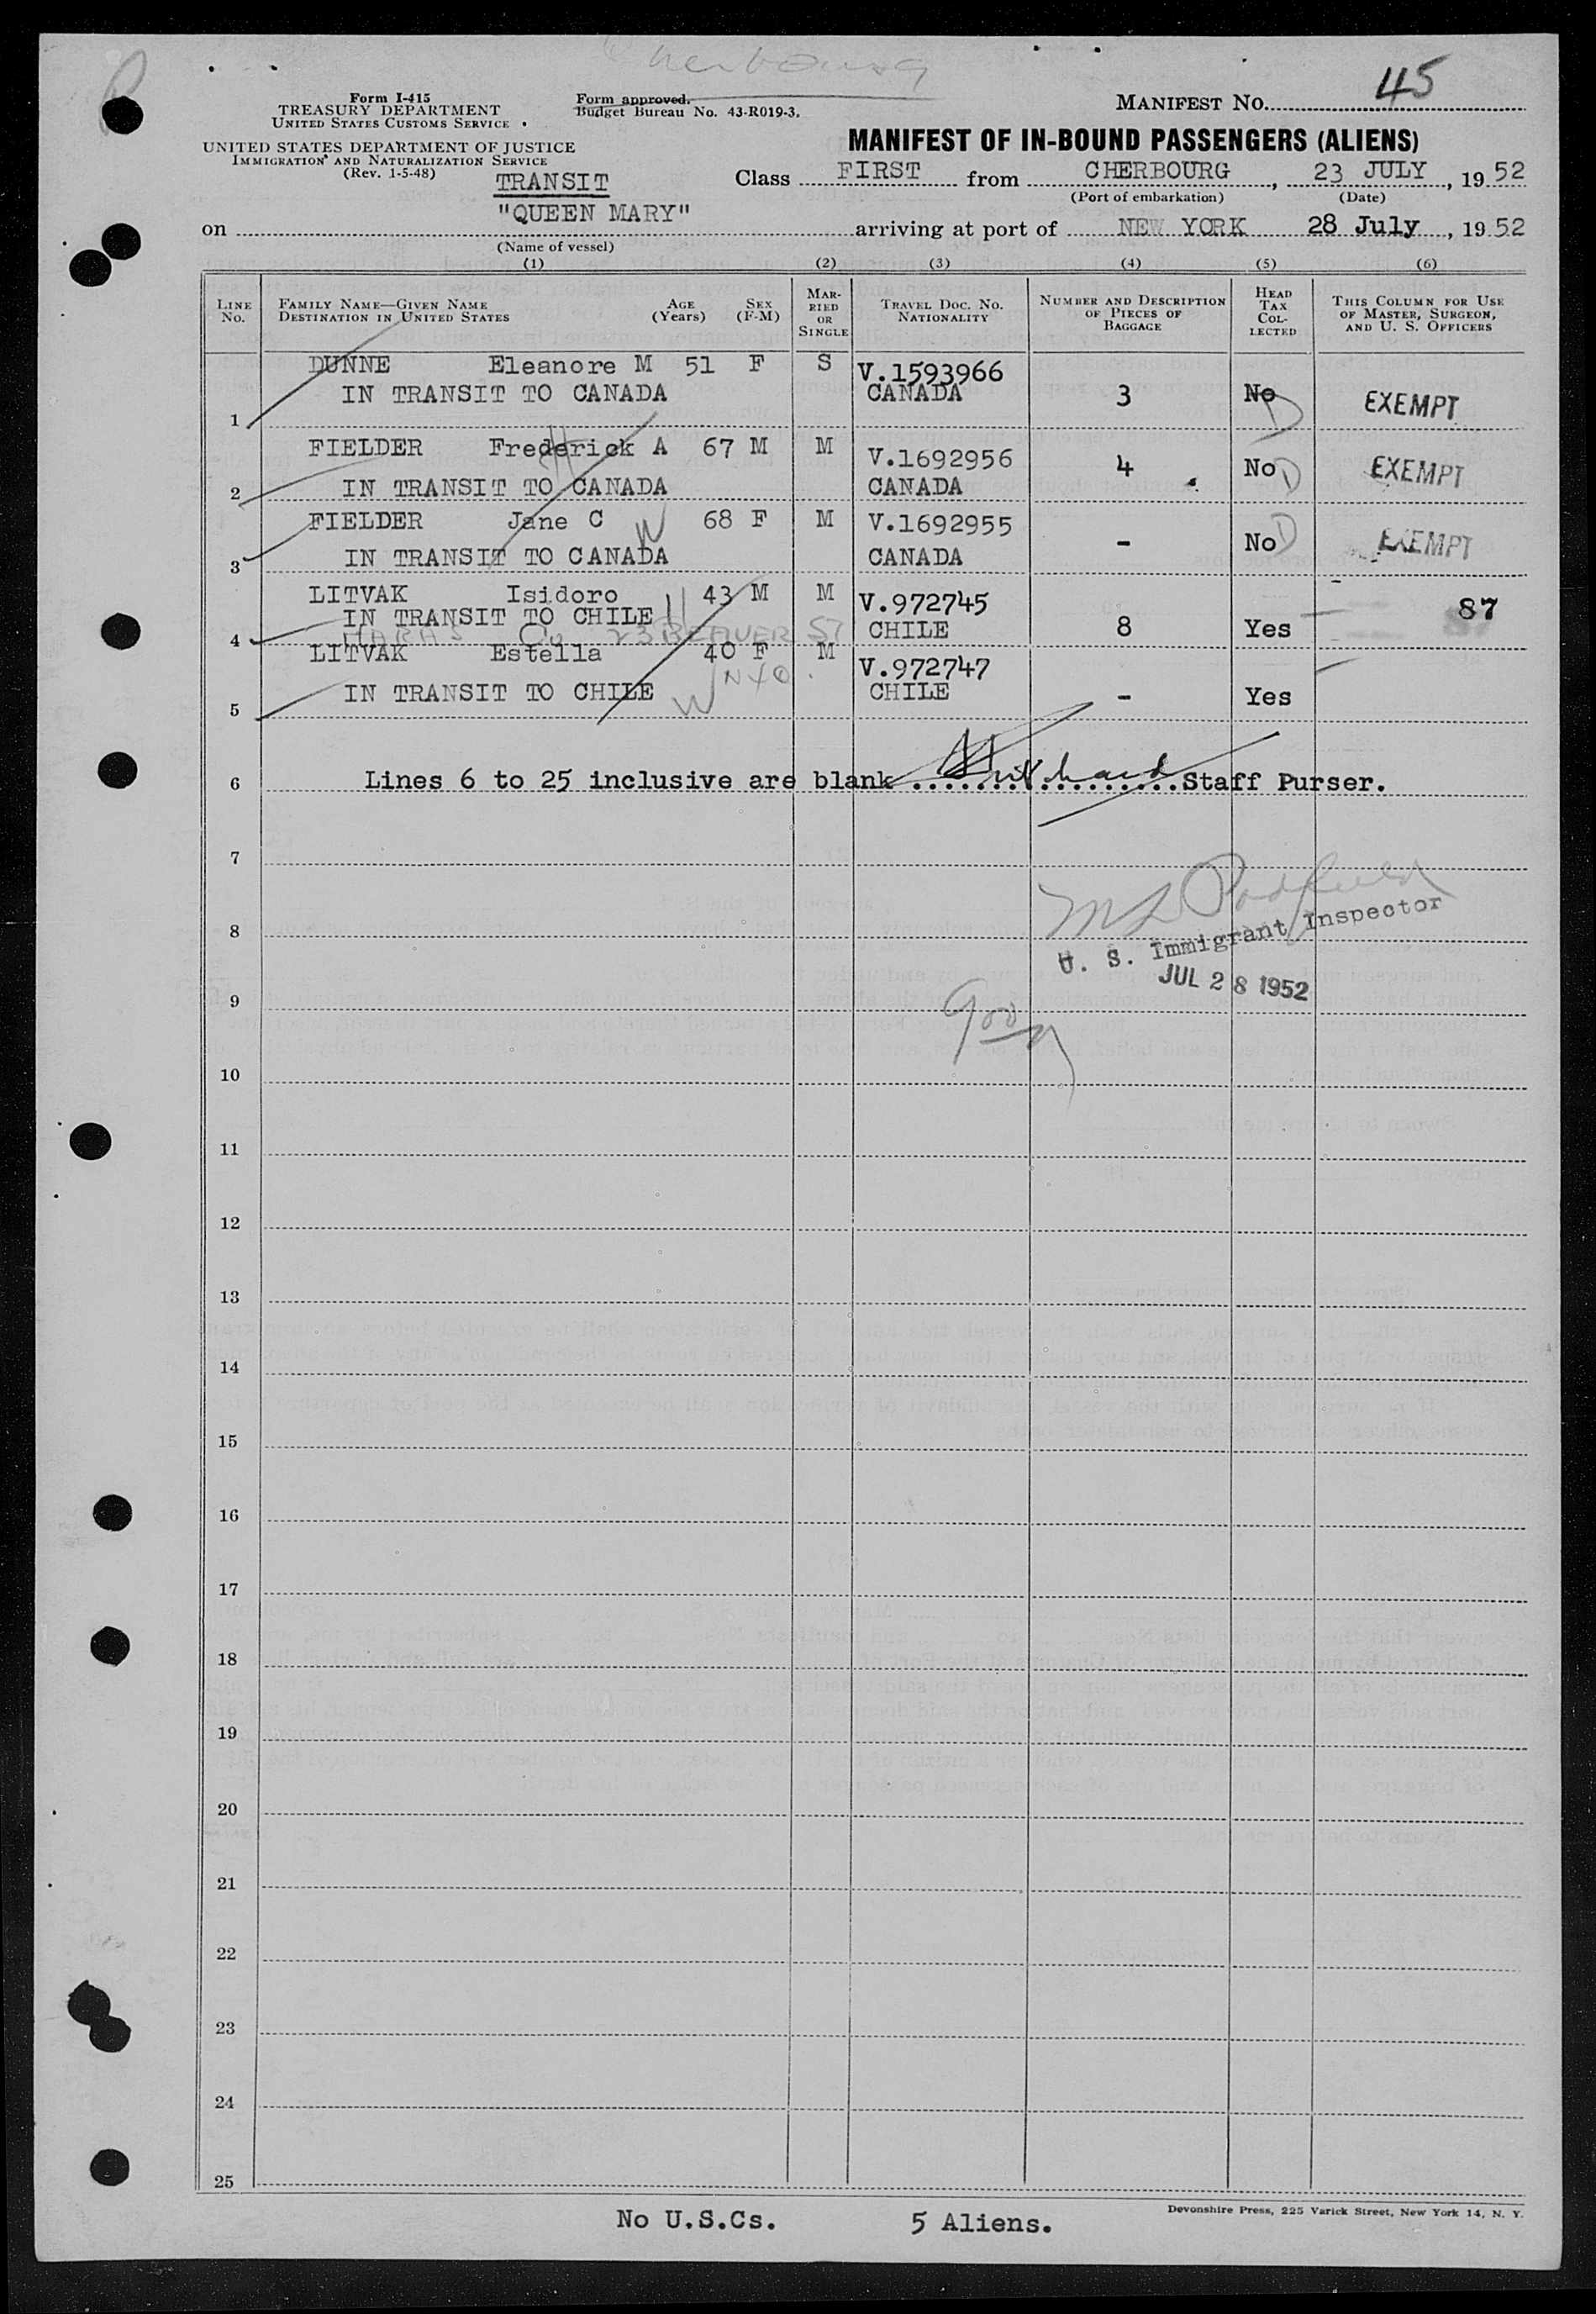 Cherbourg
45
Form I-415
TREASURY DEPARTMENT
UNITED STATES CUSTOMS SERVICE
Form approved.
Budget Bureau No. 43-R019-3.
MANIFEST NO.
UNITED STATES DEPARTMENT OF JUSTICE
IMMIGRATION AND NATURALIZATION SERVICE
(Rev. 1-5-48)
MANIFEST OF IN-BOUND PASSENGERS (ALIENS)
TRANSIT
Class FIRST from CHERBOURG, 23 JULY, 1952
(Port of embarkation) (Date)
on "QUEEN MARY" arriving at port of NEW YORK 28 July, 1952
(Name of vessel)
(1) (2) (3) (4) (5) (6)
LINE NO.
FAMILY NAME—GIVEN NAME
DESTINATION IN UNITED STATES
AGE (Years)
SEX (F-M)
MARRIED OR SINGLE
TRAVEL DOC. NO.
NATIONALITY
NUMBER AND DESCRIPTION OF PIECES OF BAGGAGE
HEAD TAX COLLECTED
THIS COLUMN FOR USE OF MASTER, SURGEON, AND U. S. OFFICERS
DUNNE Eleanore M 51 F S V.1593966
1 IN TRANSIT TO CANADA CANADA 3 No EXEMPT
FIELDER Frederick A 67 M M V.1692956
2 IN TRANSIT TO CANADA CANADA 4 No EXEMPT
FIELDER Jane C 68 F M V.1692955
3 IN TRANSIT TO CANADA CANADA - No EXEMPT
LITVAK Isidoro 43 M M V.972745 87
4 IN TRANSIT TO CHILE CHILE 8 Yes
23 BEAVER ST
LITVAK Estella 40 F M V.972747
NYC.
5 IN TRANSIT TO CHILE CHILE - Yes
6 Lines 6 to 25 inclusive are blank Staff Purser.
7
8
U. S. Immigrant Inspector
JUL 28 1952
9
10
11
12
13
14
15
16
17
18
19
20
21
22
23
24
25
No U.S.Cs. 5 Aliens.
Devonshire Press, 225 Varick Street, New York 14, N. Y.